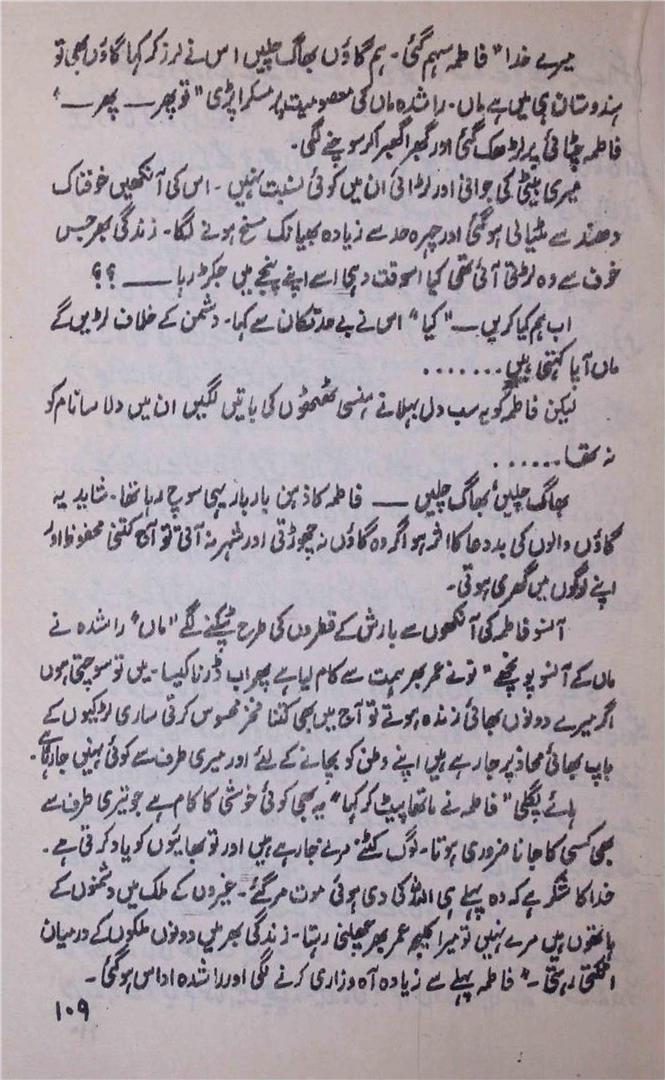 میرے خدا" فاطمہ سہم گئی۔ ہم گاؤں بھاگ چلیں اس نے لرز کر کہا گاؤں بھی تو
ہندوستان ہی میں ہے ماں۔ راشدہ ماں کی معصومیت پر مسکرا پڑی "تو پھر ــــ پھر ــــ"
فاطمہ چٹائی پر لڑھک گئی اور گھبرا گھبرا کر سوچنے لگی۔
میری بیٹی کی جوانی اور لڑائی ان میں کوئی نسبت نہیں۔ اس کی آنکھیں خوفناک
دھند سے مٹیالی ہو گئی اور چہرہ حد سے زیادہ بھیانک مسخ ہونے لگا۔ زندگی بھر جس
خوف سے وہ لڑتی آئی تھی کیا اسوقت وہی اسے اپنے پنجے میں جکڑ رہا ــــ ؟؟
اب ہم کیا کریں ــ "کیا" اس نے بے حد تکان سے کہا۔ دشمن کے خلاف لڑیں گے
ماں آپا کہتی ہیں.......
لیکن فاطمہ کو یہ سب دل بہلانے ہنسی ٹھٹھوں کی باتیں لگیں ان میں دلاسا نام کو
نہ تھا......
بھاگ چلیں، بھاگ چلیں ــــ فاطمہ کا ذہن بار بار یہی سوچ رہا تھا۔ شاید یہ
گاؤں والوں کی بددعا کا اثر ہو اگر وہ گاؤں نہ چھوڑتی اور شہر نہ آتی تو آج کتنی محفوظ اور
اپنے لوگوں میں گھری ہوتی۔
آنسو فاطمہ کی آنکھوں سے بارش کے قطروں کی طرح ٹپکنے لگے "ماں" راشدہ نے
ماں کے آنسو پونچھے "تو نے عمر بھر ہمت سے کام لیا ہے پھر اب ڈرنا کیسا۔ میں تو سوچتی ہوں
اگر میرے دونوں بھائی زندہ ہوتے تو آج میں بھی کتنا فخر محسوس کرتی ساری لڑکیوں کے
باپ بھائی محاذ پر جا رہے ہیں اپنے وطن کو بچانے کے لئے اور میری طرف سے کوئی نہیں جا رہا ہے۔
ہائے پگلی" فاطمہ نے ماتھا پیٹ کر کہا "یہ بھی کوئی خوشی کا کام ہے جو تیری طرف سے
بھی کسی کا جانا ضروری ہوتا۔ لوگ کٹنے مرنے جا رہے ہیں اور تو بھائیوں کو یاد کرتی ہے۔
خدا کا شکر ہے کہ وہ پہلے ہی اللہ کی دی ہوئی موت مر گئے۔ غیروں کے ملک میں دشمنوں کے
ہاتھوں میں مرے نہیں تو میرا کلیجہ عمر بھر چھلنی رہتا۔ زندگی بھر میں دونوں ملکوں کے درمیان
اٹکتی رہتی۔" فاطمہ پہلے سے زیادہ آہ وزاری کرنے لگی اور راشدہ اداس ہو گئی۔
۱۰۹